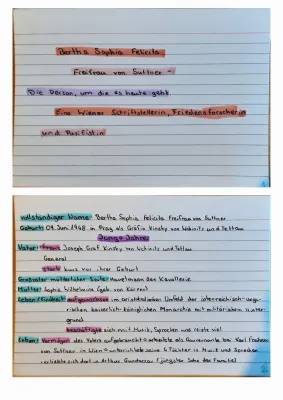 Bertha Sophia Felicita
Freifrau von Suttner -
Die Person, um die es heute geht.
Eine Wiener Schriftstellerin, Friedensforscherin
und Pazifistin
vollständiger Name: Bertha Sophia Felicita Freifrau von Suttner
Geburt: 09. Juni 1948 in Prag als Gräfin Kinsky von Wchinitz und Tettau
Junge Jahre
Vater: Franz Joseph Graf Kinsky von Wchinitz und Tettau
General
starb kurz vor ihrer Geburt
Großvater mütterlicher Seite: Hauptmann der Kavallerie
Mutter: Sophia Wilhelmine (geb. von Körner)
Leben/Kindheit: aufgewachsen im aristokratischen Umfeld der österreichisch-ungarischen kaiserlich-königlichen Monarchie mit militärischem
beschäftigte sich mit Musik, Sprachen und reiste viel
Leben: Vermögen des Vaters aufgebraucht → arbeitete als Gouvernante bei Karl Freiherr
von Suttner in Wien → unterrichtete seine 4 Töchter in Musik und Sprachen
verliebte sich dort in Arthur Gundaccar (jüngster Sohn der Familie)